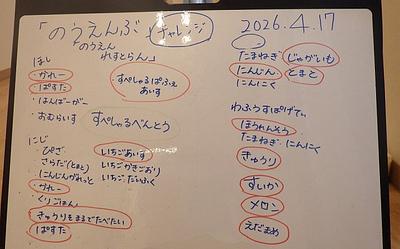 「のうえんぶ」チャレンジ
「のうえん
れすとらん」
ほし
かれー
ぱすた
はんばーがー
おむらいす
すぺしゃるぱふぇ
あいす
すぺしゃるべんとう
にじ
ぴざ
さらだ(とまと)
にんじんがれっと
かれー
くりごはん
きゅうりをままでたべたい
ぱすた
いちごあいす
いちごかきごおり
いちごだいふく
2026.4.17
たまねぎ じゃがいも
にんじん とまと
にんにく
わふうすぱげてぃ
ほうれんそう
たまねぎ にんにく
きゅうり
すいか
メロン
えだまめ